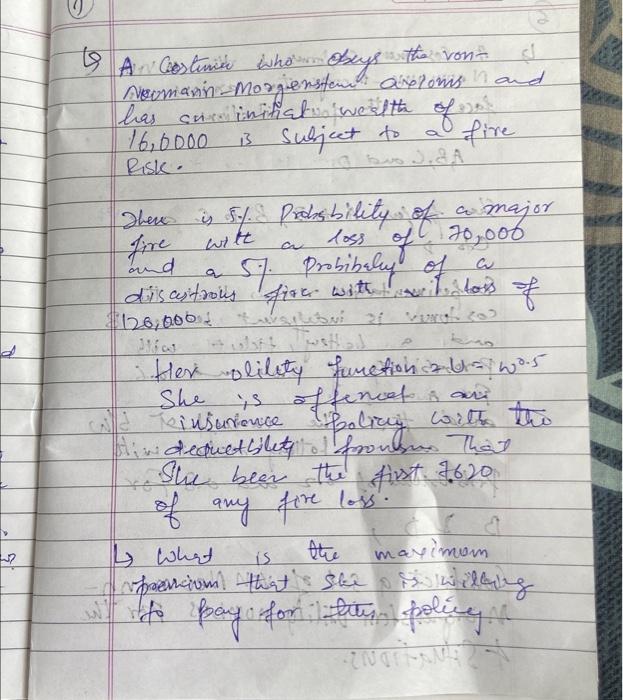 1)
↳ A Costumer who obeys the von-
Neumann-Morgenstern axioms and
has an initial wealth of
16,0000 is subject to a fire
Risk.
There is 5% Probability of a major
fire with a loss of 70,000
and a 5% Probibaly of a
disastrous fire with loss of
120,000.
Her utility function = U = W0.5
She is offered an
insurance policy with the
deductibility That
She bear the first 7620
of any fire loss.
↳ What is the maximum
premium that she is willing
to pay for this policy